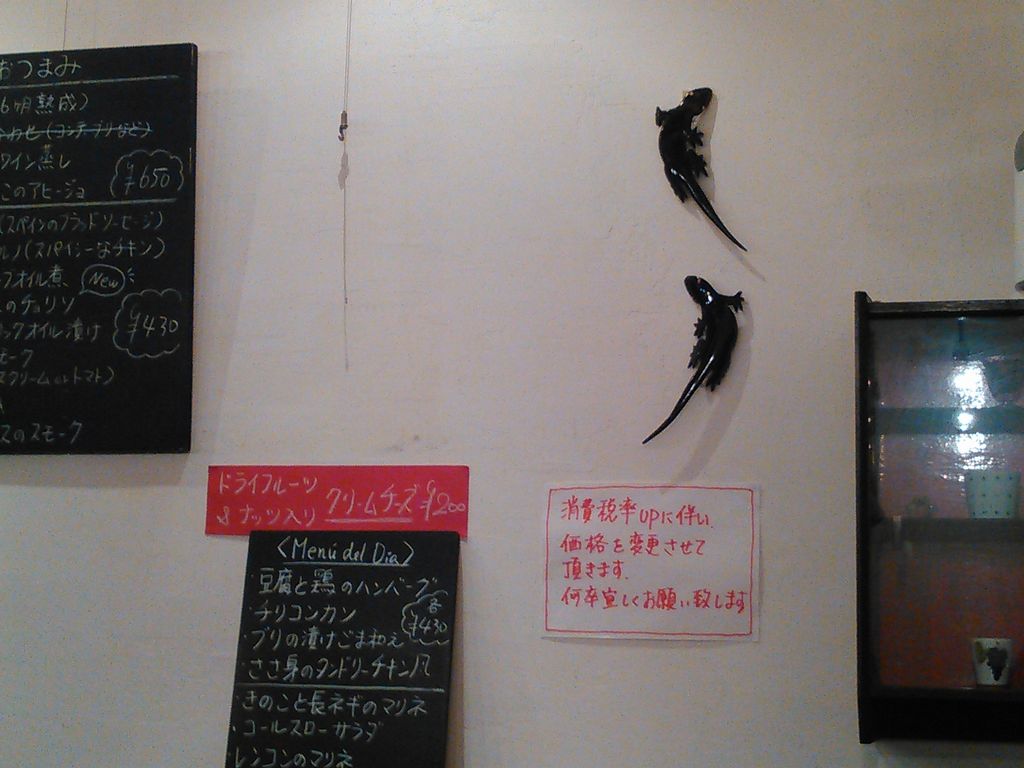 おつまみ
6ヶ月熟成)
わせ(コンテ・ブリなど)
ワイン蒸し
このアヒージョ
¥650
(スペインのブラッドソーセージ)
ルノ(スパイシーなチキン)
オイル煮
New
のチョリソ
ックオイル漬け
¥430
モーク
クリーム or トマト)
スのスモーク
ドライフルーツ
& ナッツ入り クリームチーズ ¥200
<Menú del Dia>
・豆腐と鶏のハンバーグ
・チリコンカン
各
¥430
・ブリの漬けごま和え
・ささ身のタンドリーチキン風
・きのこと長ネギのマリネ
・コールスローサラダ
・レンコンのマリネ
消費税率UPに伴い、
価格を変更させて
頂きます。
何卒宜しくお願い致します